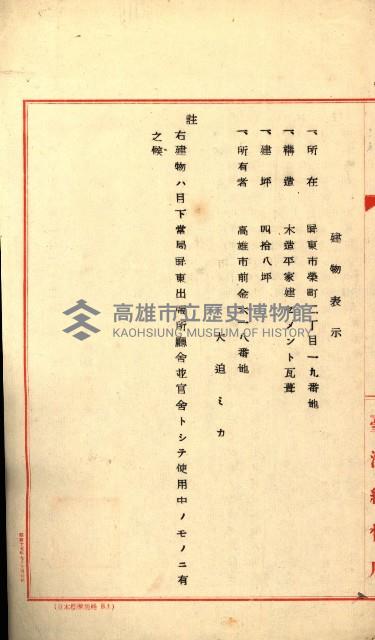 建物表示
一、所在 屏東市榮町二丁目一九番地
一、構造 木造平家建セメント瓦葺
一、建坪 四拾八坪
一、所有者 高雄市前金六一八番地
大迫ミカ
註
右建物ハ目下當局屏東出張所廳舍並官舍トシテ使用中ノモノニ有
之候
高雄市立歷史博物館
KAOHSIUNG MUSEUM OF HISTORY